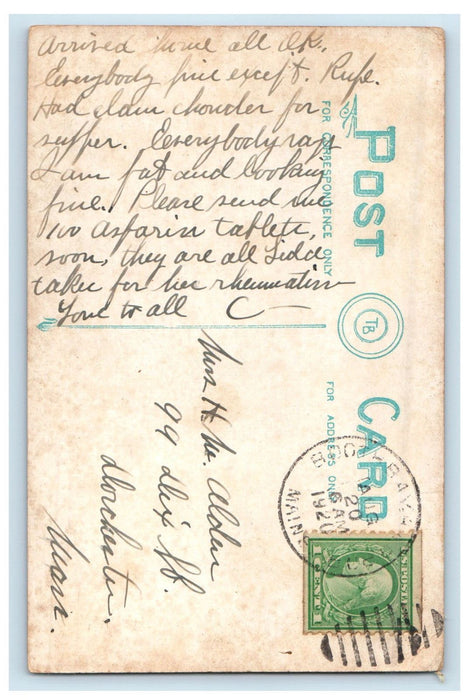 arrived home all O.K.
Everybody fine except. Rufe.
Had clam chowder for
supper. Everybody says
I am fat and looking
fine. Please send me
100 Asparin tablets,
soon, they are all
takes for her rheumatism
Love to all C
POST CARD
FOR CORRESPONDENCE ONLY
TB
FOR ADDRESS ONLY
Mrs H. W. Alden
99 Dix St.
Dorchester,
Mass.
BOOTHBAY
AUG
20
6 AM
1920
MAINE
U.S. POSTAGE
1 CENT 1